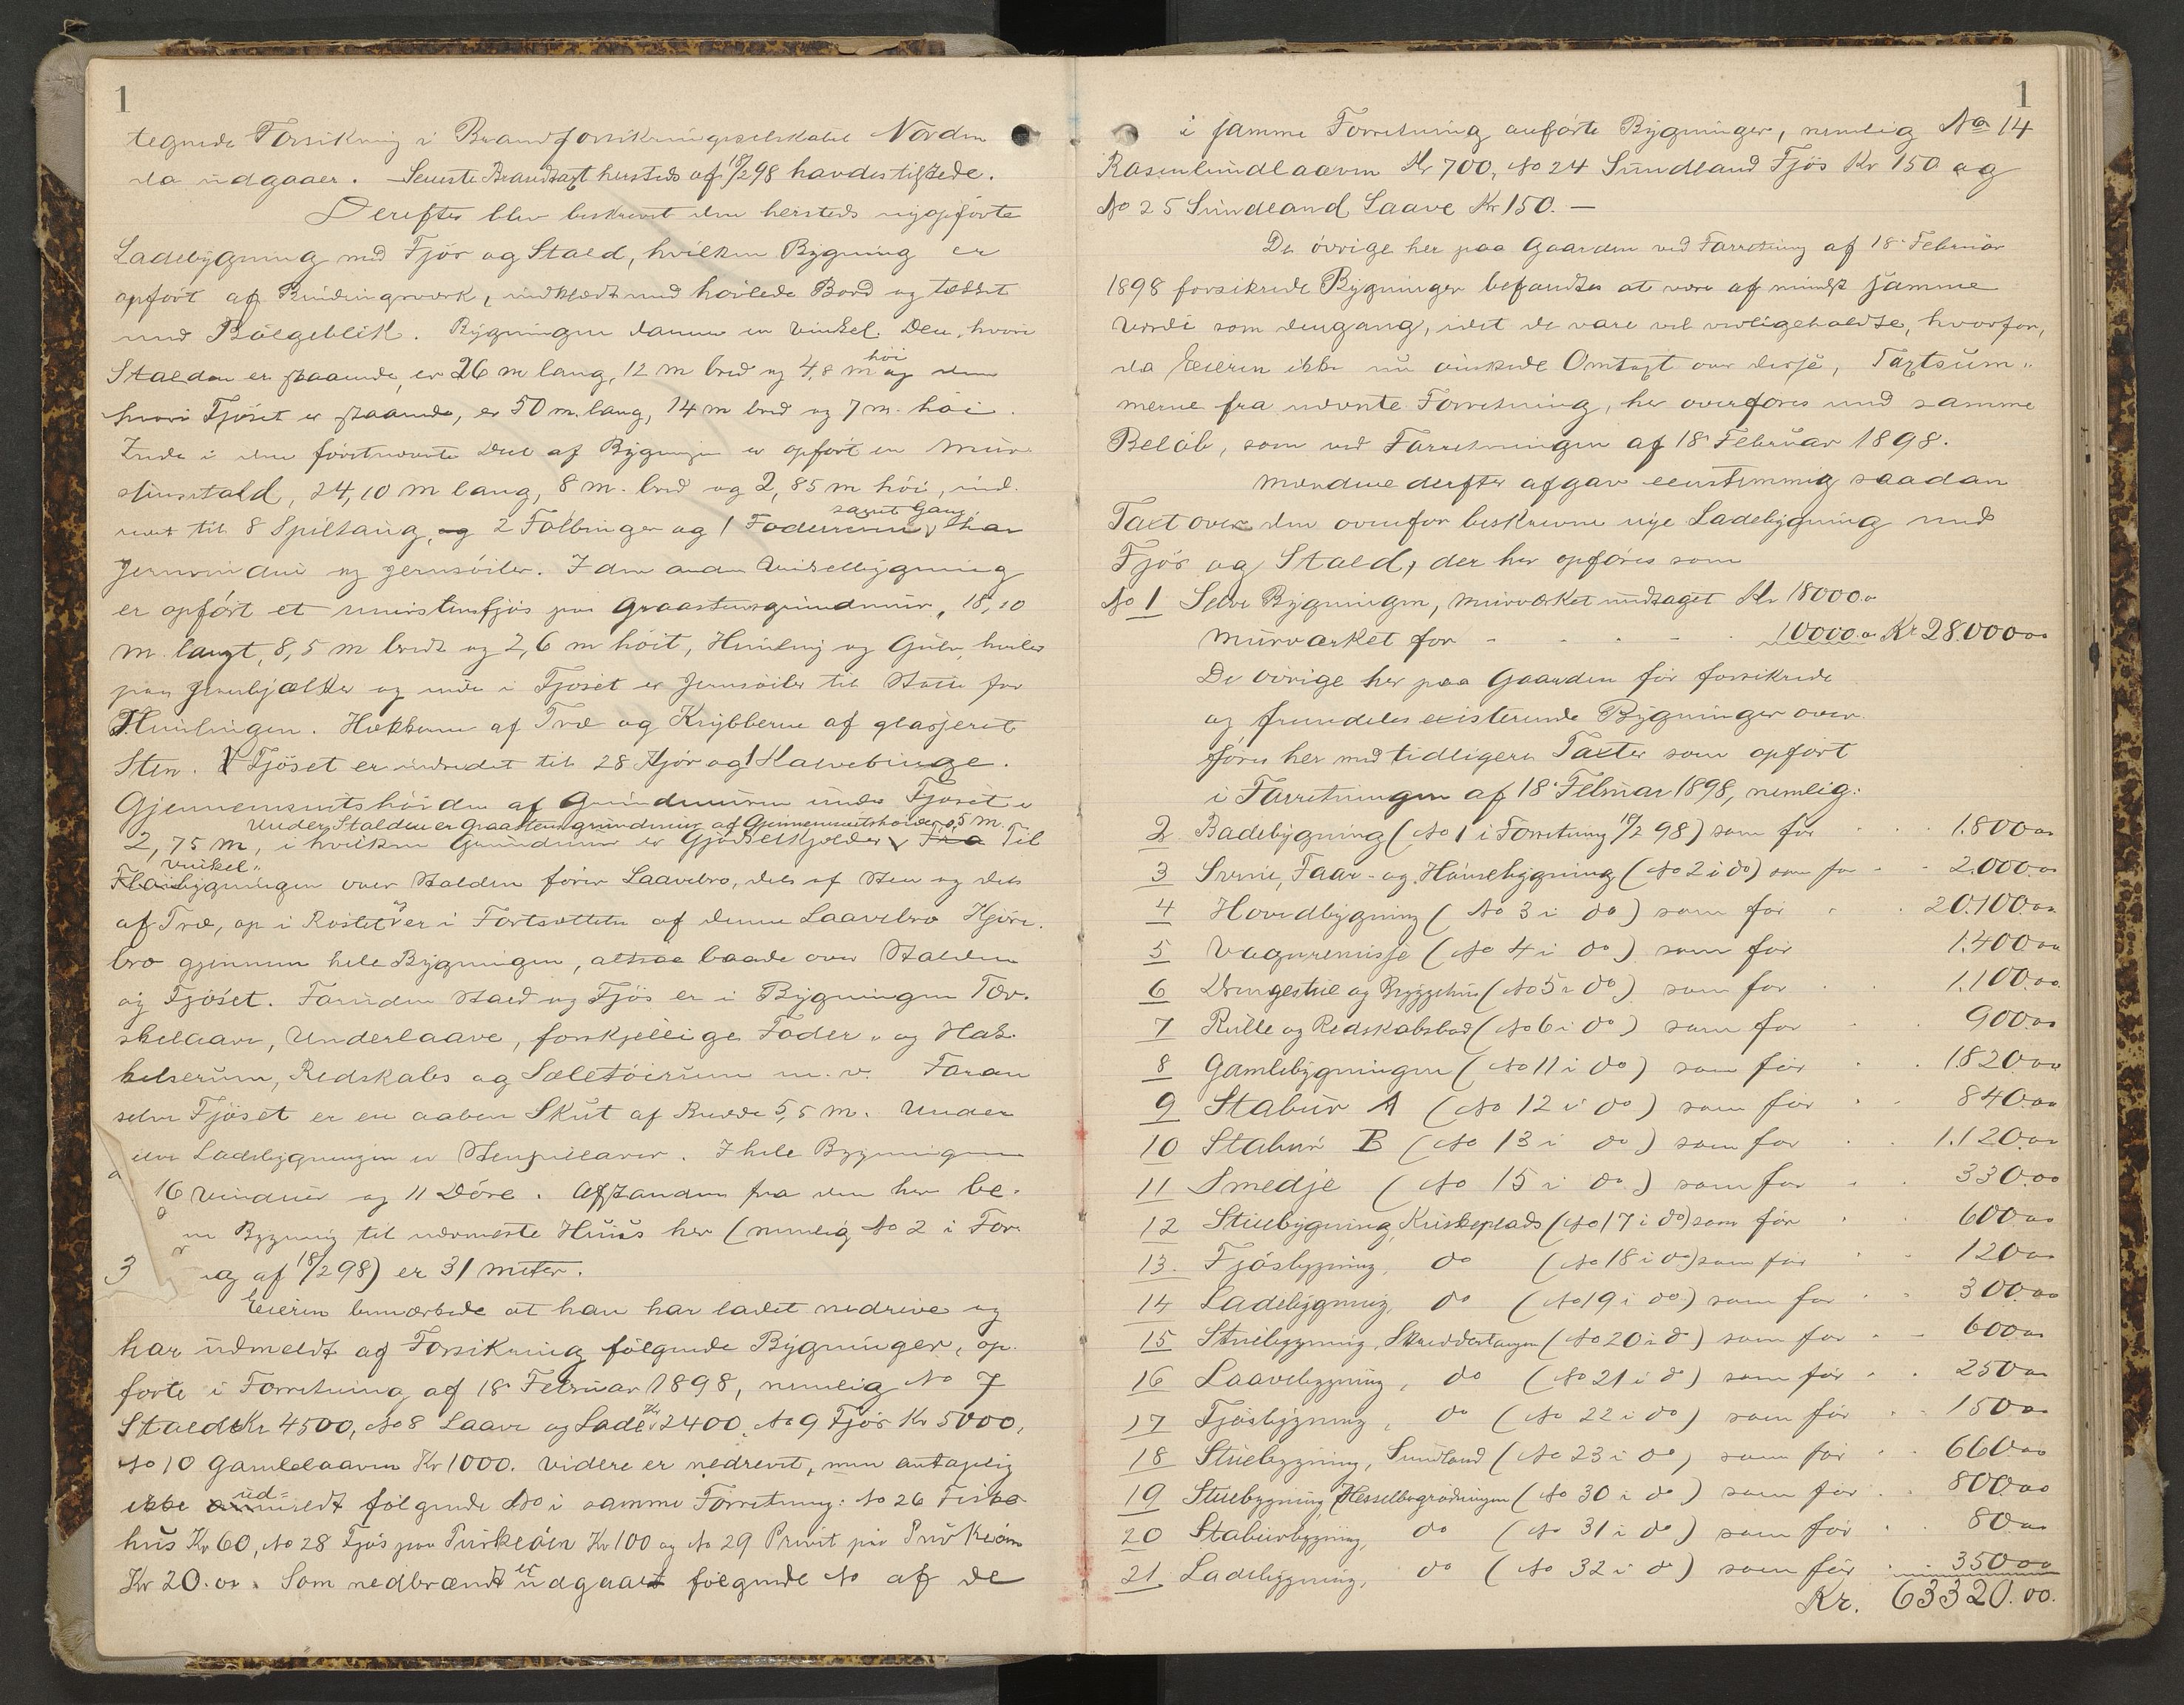 1
tegnede Forsikring i Brandforsikringsselskabet Norden
da udgaaer. Seneste Brandtaxt hersteds af 18/2 98 havdes tilstede.
Derefter blev beskrevet den hersteds nyopförte
Ladebygning med Fjös og Stald, hvilken Bygning er
opfört af Bindingsværk, indklædt med hövlede Bord og tækket
med Bölgeblik. Bygningen danner en Vinkel. Den, hvori
Stalden er staaende, er 26 m lang, 12 m bred og 4,8 m höi og den
hvori Fjöset er staaende, er 50 m. lang, 14 m bred og 7 m. höi.
Inde i den förstnævnte Deel af Bygningen er opfört en Mur-
stenstald, 24,10 m lang, 8 m. bred og 2,85 m höi, ind-
redet til 8 Spiltaug, og 2 Fölbinger og 1 Foderrum samt Gang, har
Jernvinduer og Jernsöiler. I den anden Vinkelbygning
er opfört et murstensfjös paa Graastensgrundmur, 18,10
m langt, 8,5 m bredt og 2,6 m höit, Himling og Gulv hviler
paa Jernbjælker og inde i Fjöset er Jernsöiler til Stötte for
Himlingen. Hækkerne af Træ og Krybberne af glasjeret
Sten. Fjöset er indredet til 28 Kjör og 1 Kalvebinge.
Gjennemsnitshöiden af Grundmuren under Fjöset er
Under Stalden er Graastensgrundmur af Gjennemsnitshöide 0,5 m.
2,75 m, i hvilken Grundmur er Gjödselkjelder. Fra Til
Vinkel-
bygningen over Stalden förer Laavebro, dels af Sten og dels
af Træ, op i Rostet og er i Fortsættelse af denne Laavebro Kjöre-
bro gjennem hele Bygningen, altsaa baade over Stalden
og Fjöset. Foruden Stald og Fjös er i Bygningen Tær-
skelaave, Underlaave, forskjellige Foder- og Hak-
kelserum, Redskabs og Sæletöirum m. v. Foran
selve Fjöset er en aaben Skut af Bredde 5,5 m. Under
Ladebygningen er Stenpillarer. I hele Bygningen
16 Vinduer og 11 Döre. Afstanden fra den her be-
Bygning til nærmeste Huus her (nemlig No 2 i For-
3
af 18/2 98) er 31 meter.
Eieren bemærkede at han har ladet nedrive og
har udmeldt af Forsikring fölgende Bygninger, op-
förte i Forretning af 18 Februar 1898, nemlig No 7
Stald Kr 4500, No 8 Laave og Lade Kr 2400, No 9 Fjös Kr 5000,
No 10 Gamlelaaven Kr 1000. Videre er nedrevet, men antagelig
ikke ud-
meldt fölgende No i samme Forretning: No 26 Fiske-
hus Kr 60, No 28 Fjös paa Purkeöen Kr 100 og No 29 Privet paa Purkeöen
Kr 20.00. Som nedbrændt er udgaaet fölgende No af de
1
i samme Forretning anförte Bygninger, nemlig No 14
Rosenlundlaaven Kr 700, No 24 Sundland Fjös Kr 150 og
No 25 Sundland Laave Kr 150. —
De övrige her paa Gaarden ved Forretning af 18 Februar
1898 forsikrede Bygninger befandtes at være af mindst samme
Værdi som dengang, idet de vare vel vedligeholdte, hvorfor,
da Eieren ikke nu önskede Omtaxt over disse, Taxtsum-
merne fra nævnte Forretning, her overföres med samme
Belöb, som ved Forretningen af 18 Februar 1898.
Mændene derefter afgav eenstemmig saadan
Taxt over den ovenfor beskrevne nye Ladebygning med
Fjös og Stald, der her opföres som
No 1 Selve Bygningen, Murværket undtaget Kr 18000.00
Murværket for - - - 10000.00 Kr 28.000.00
De övrige her paa Gaarden för forsikrede
og fremdeles existerende Bygninger over-
föres her med tidligere Taxter som opfört
i Forretningen af 18 Februar 1898, nemlig:
2 Badebygning (No 1 i Forretning 18/2 98) som för 1.800.00
3 Svine, Faar- og Hönsebygning (No 2 i do) som för 2.000.00
4 Hovedbygning (No 3 i do) som för 20.100.00
5 Vognremisse (No 4 i do) som för 1.400.00
6 Drengestue og Bryggehus (No 5 i do) som för 1.100.00
7 Rulle og Redskabsbod (No 6 i do) som för 900.00
8 Gamlebygningen (No 11 i do) som för 1820.00
9 Stabur A (No 12 i do) som för 840.00
10 Stabur B (No 13 i do) som för 1.120.00
11 Smedje (No 15 i do) som för 330.00
12 Stuebygning, Kuskeplads (No 17 i do) som för 600.00
13. Fjösbygning, do (No 18 i do) som för 120.00
14 Ladebygning, do (No 19 i do) som för 300.00
15 Stuebygning, Skreddertangen (No 20 i do) som för 600.00
16 Laavebygning, do (No 21 i do) som för 250.00
17 Fjösbygning, do (No 22 i do) som för 150.00
18 Stuebygning, Sundland (No 23 i do) som för 660.00
19 Stuebygning, Hesselbergrødningen (No 30 i do) som för 800.00
20 Stabursbygning, do (No 31 i do) som för 80.00
21 Ladebygning, do (No 32 i do) som för 350.00
Kr. 63320.00.